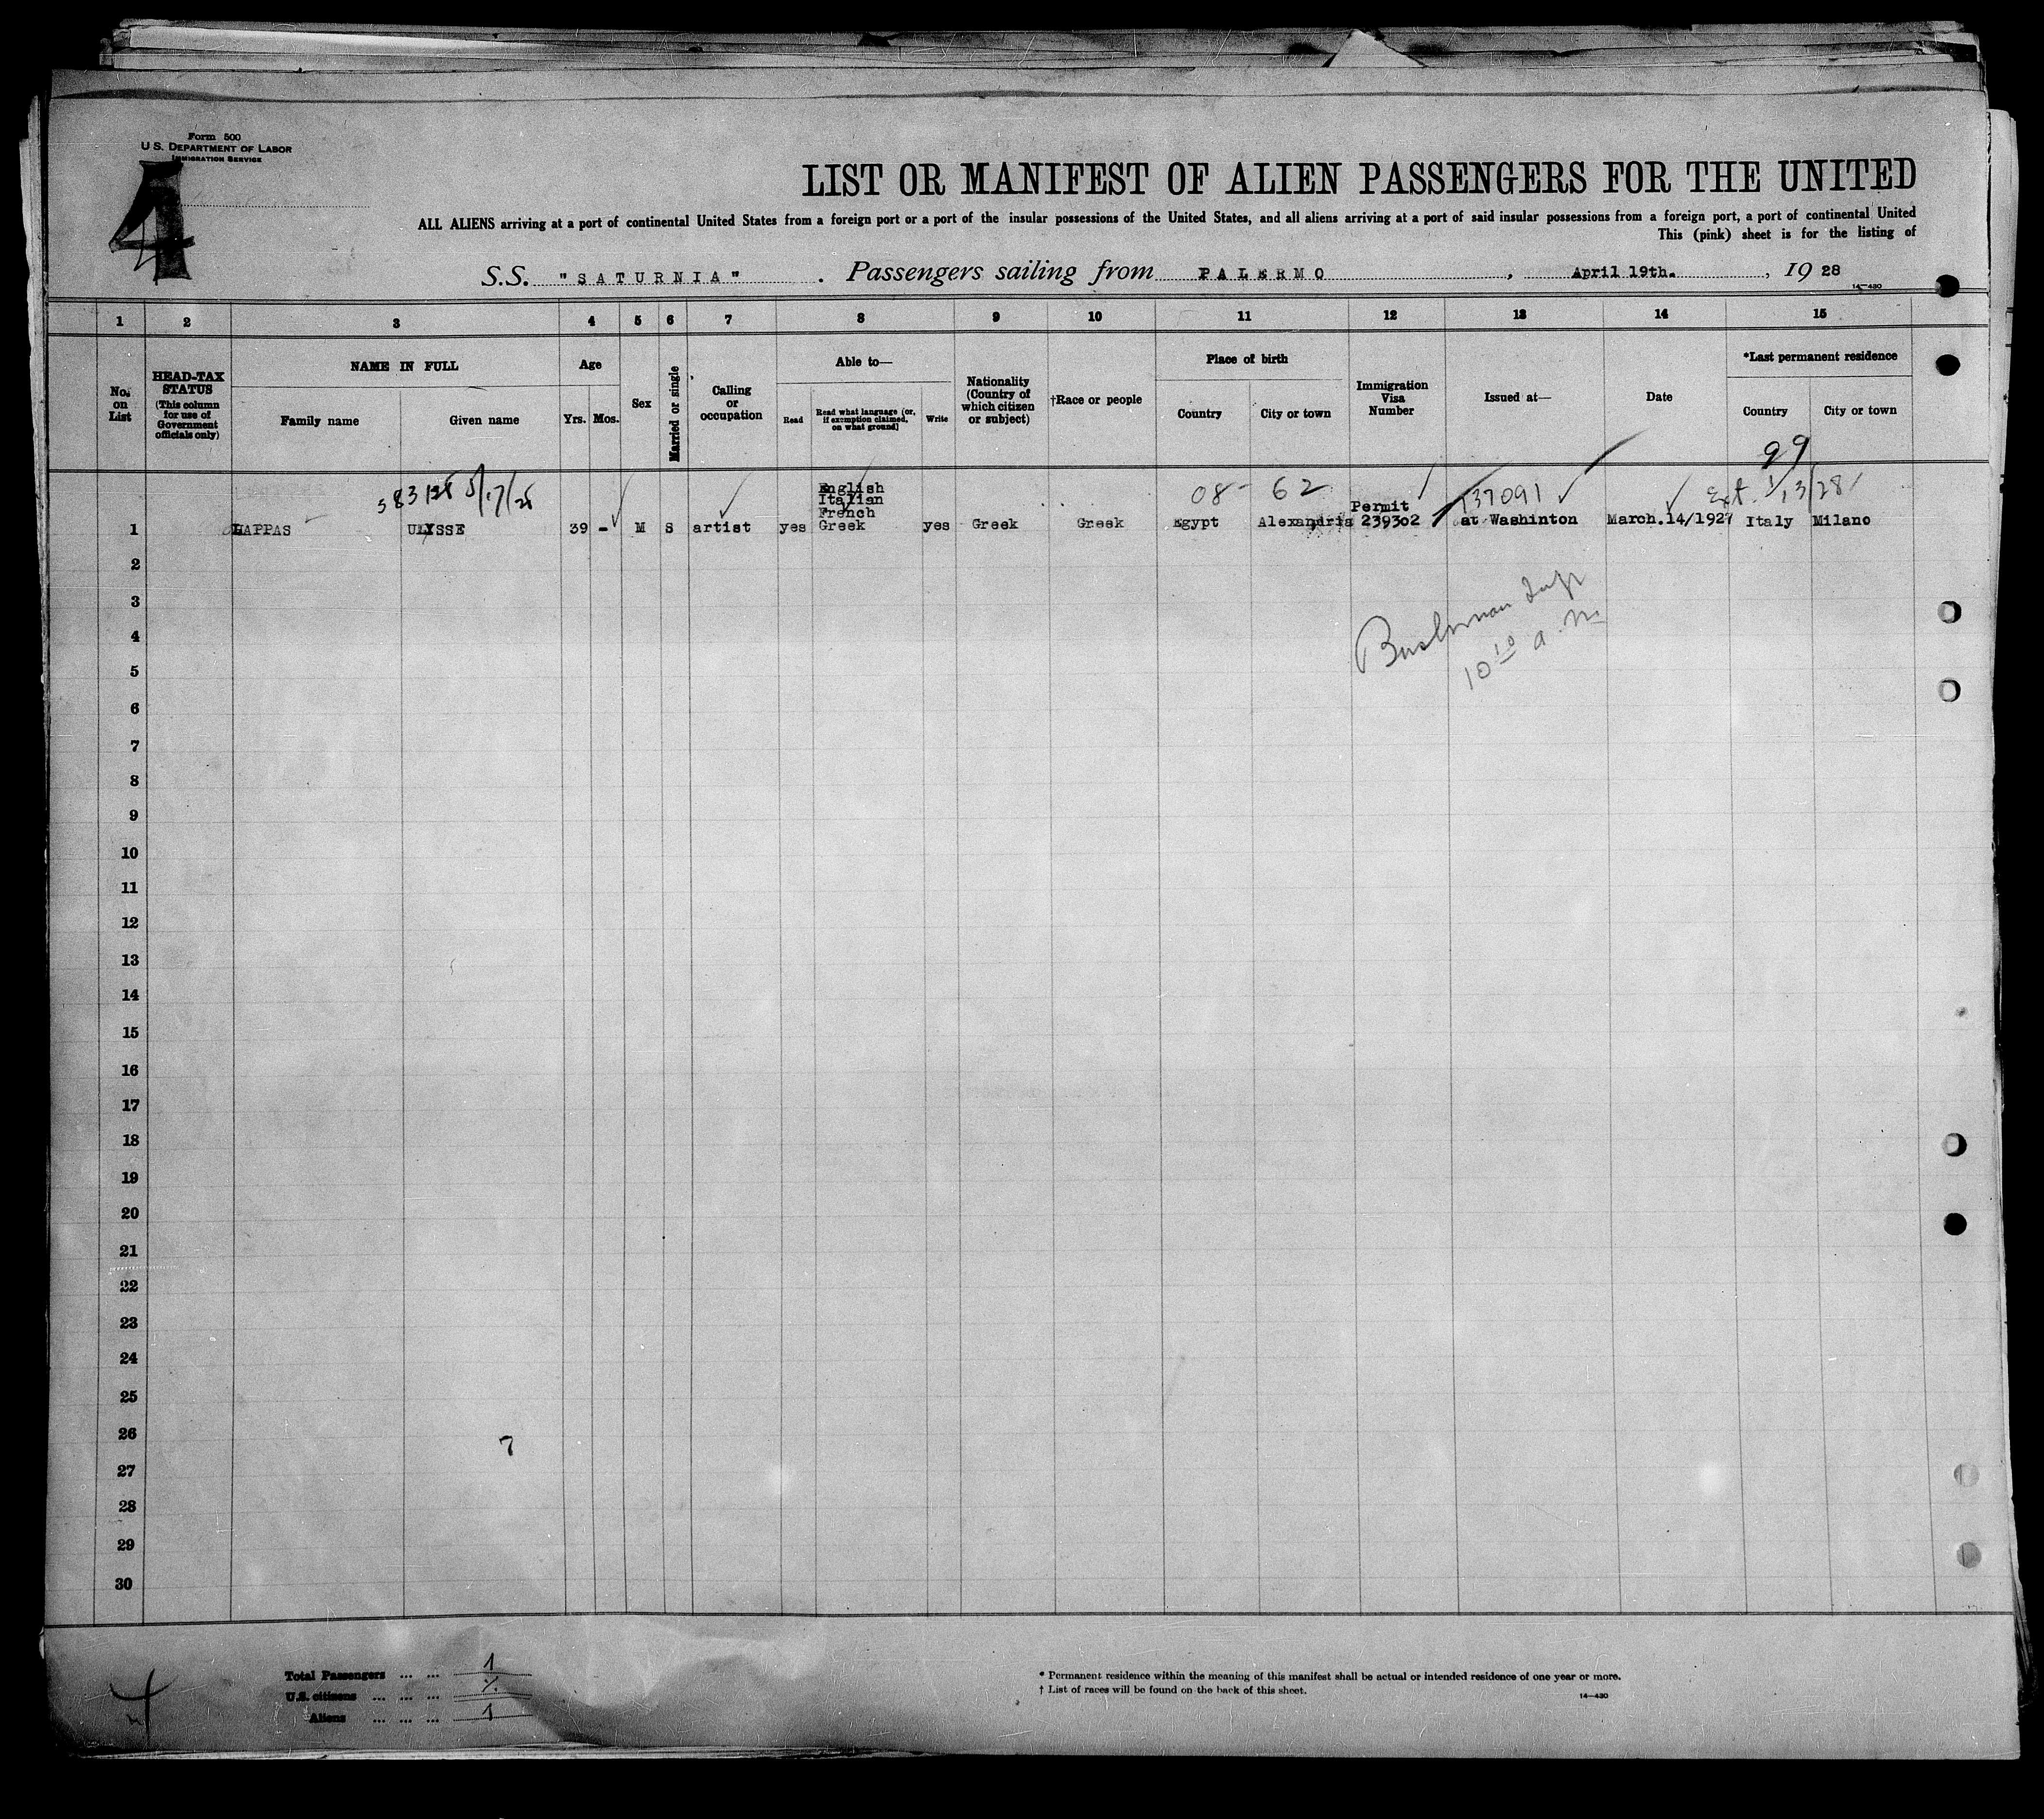 Form 500
U. S. DEPARTMENT OF LABOR
IMMIGRATION SERVICE
4
LIST OR MANIFEST OF ALIEN PASSENGERS FOR THE UNITED
ALL ALIENS arriving at a port of continental United States from a foreign port or a port of the insular possessions of the United States, and all aliens arriving at a port of said insular possessions from a foreign port, a port of continental United
This (pink) sheet is for the listing of
S.S. "SATURNIA". Passengers sailing from PALERMO, April 19th., 1928
14—430
1 2 3 4 5 6 7 8 9 10 11 12 13 14 15
No. on List
HEAD-TAX STATUS
(This column for use of Government officials only)
NAME IN FULL
Family name Given name
Age
Yrs. Mos.
Sex
Married or single
Calling or occupation
Able to—
Read
Read what language [or, if exemption claimed, on what ground]
Write
Nationality (Country of which citizen or subject)
†Race or people
Place of birth
Country City or town
Immigration Visa Number
Issued at—
Date
*Last permanent residence
Country City or town
99
5/17/28
08- 62
137091
Ext. 1/13/28
English
Italian
French
Permit
1 LAPPAS ULYSSE 39 - M S artist yes Greek yes Greek Greek Egypt Alexandria 239302 at Washinton March.14/1927 Italy Milano
2
3
10 10 a.m.
4
5
6
7
8
9
10
11
12
13
14
15
16
17
18
19
20
21
22
23
24
25
26
7
27
28
29
30
Total Passengers ... ... 1
U.S. citizens ... ... ...
Aliens ... ... ... 1
* Permanent residence within the meaning of this manifest shall be actual or intended residence of one year or more.
† List of races will be found on the back of this sheet.
14—430